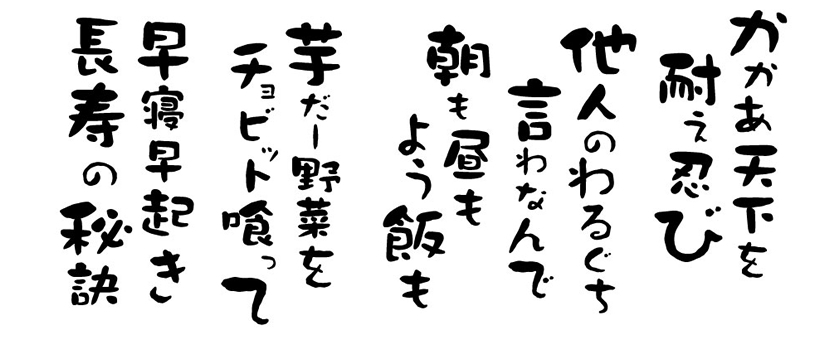 かかあ天下を
耐え忍び
他人のわるぐち
言わなんで
朝も昼も
よう飯も
芋だー野菜を
チョビット喰って
早寝早起き
長寿の秘訣